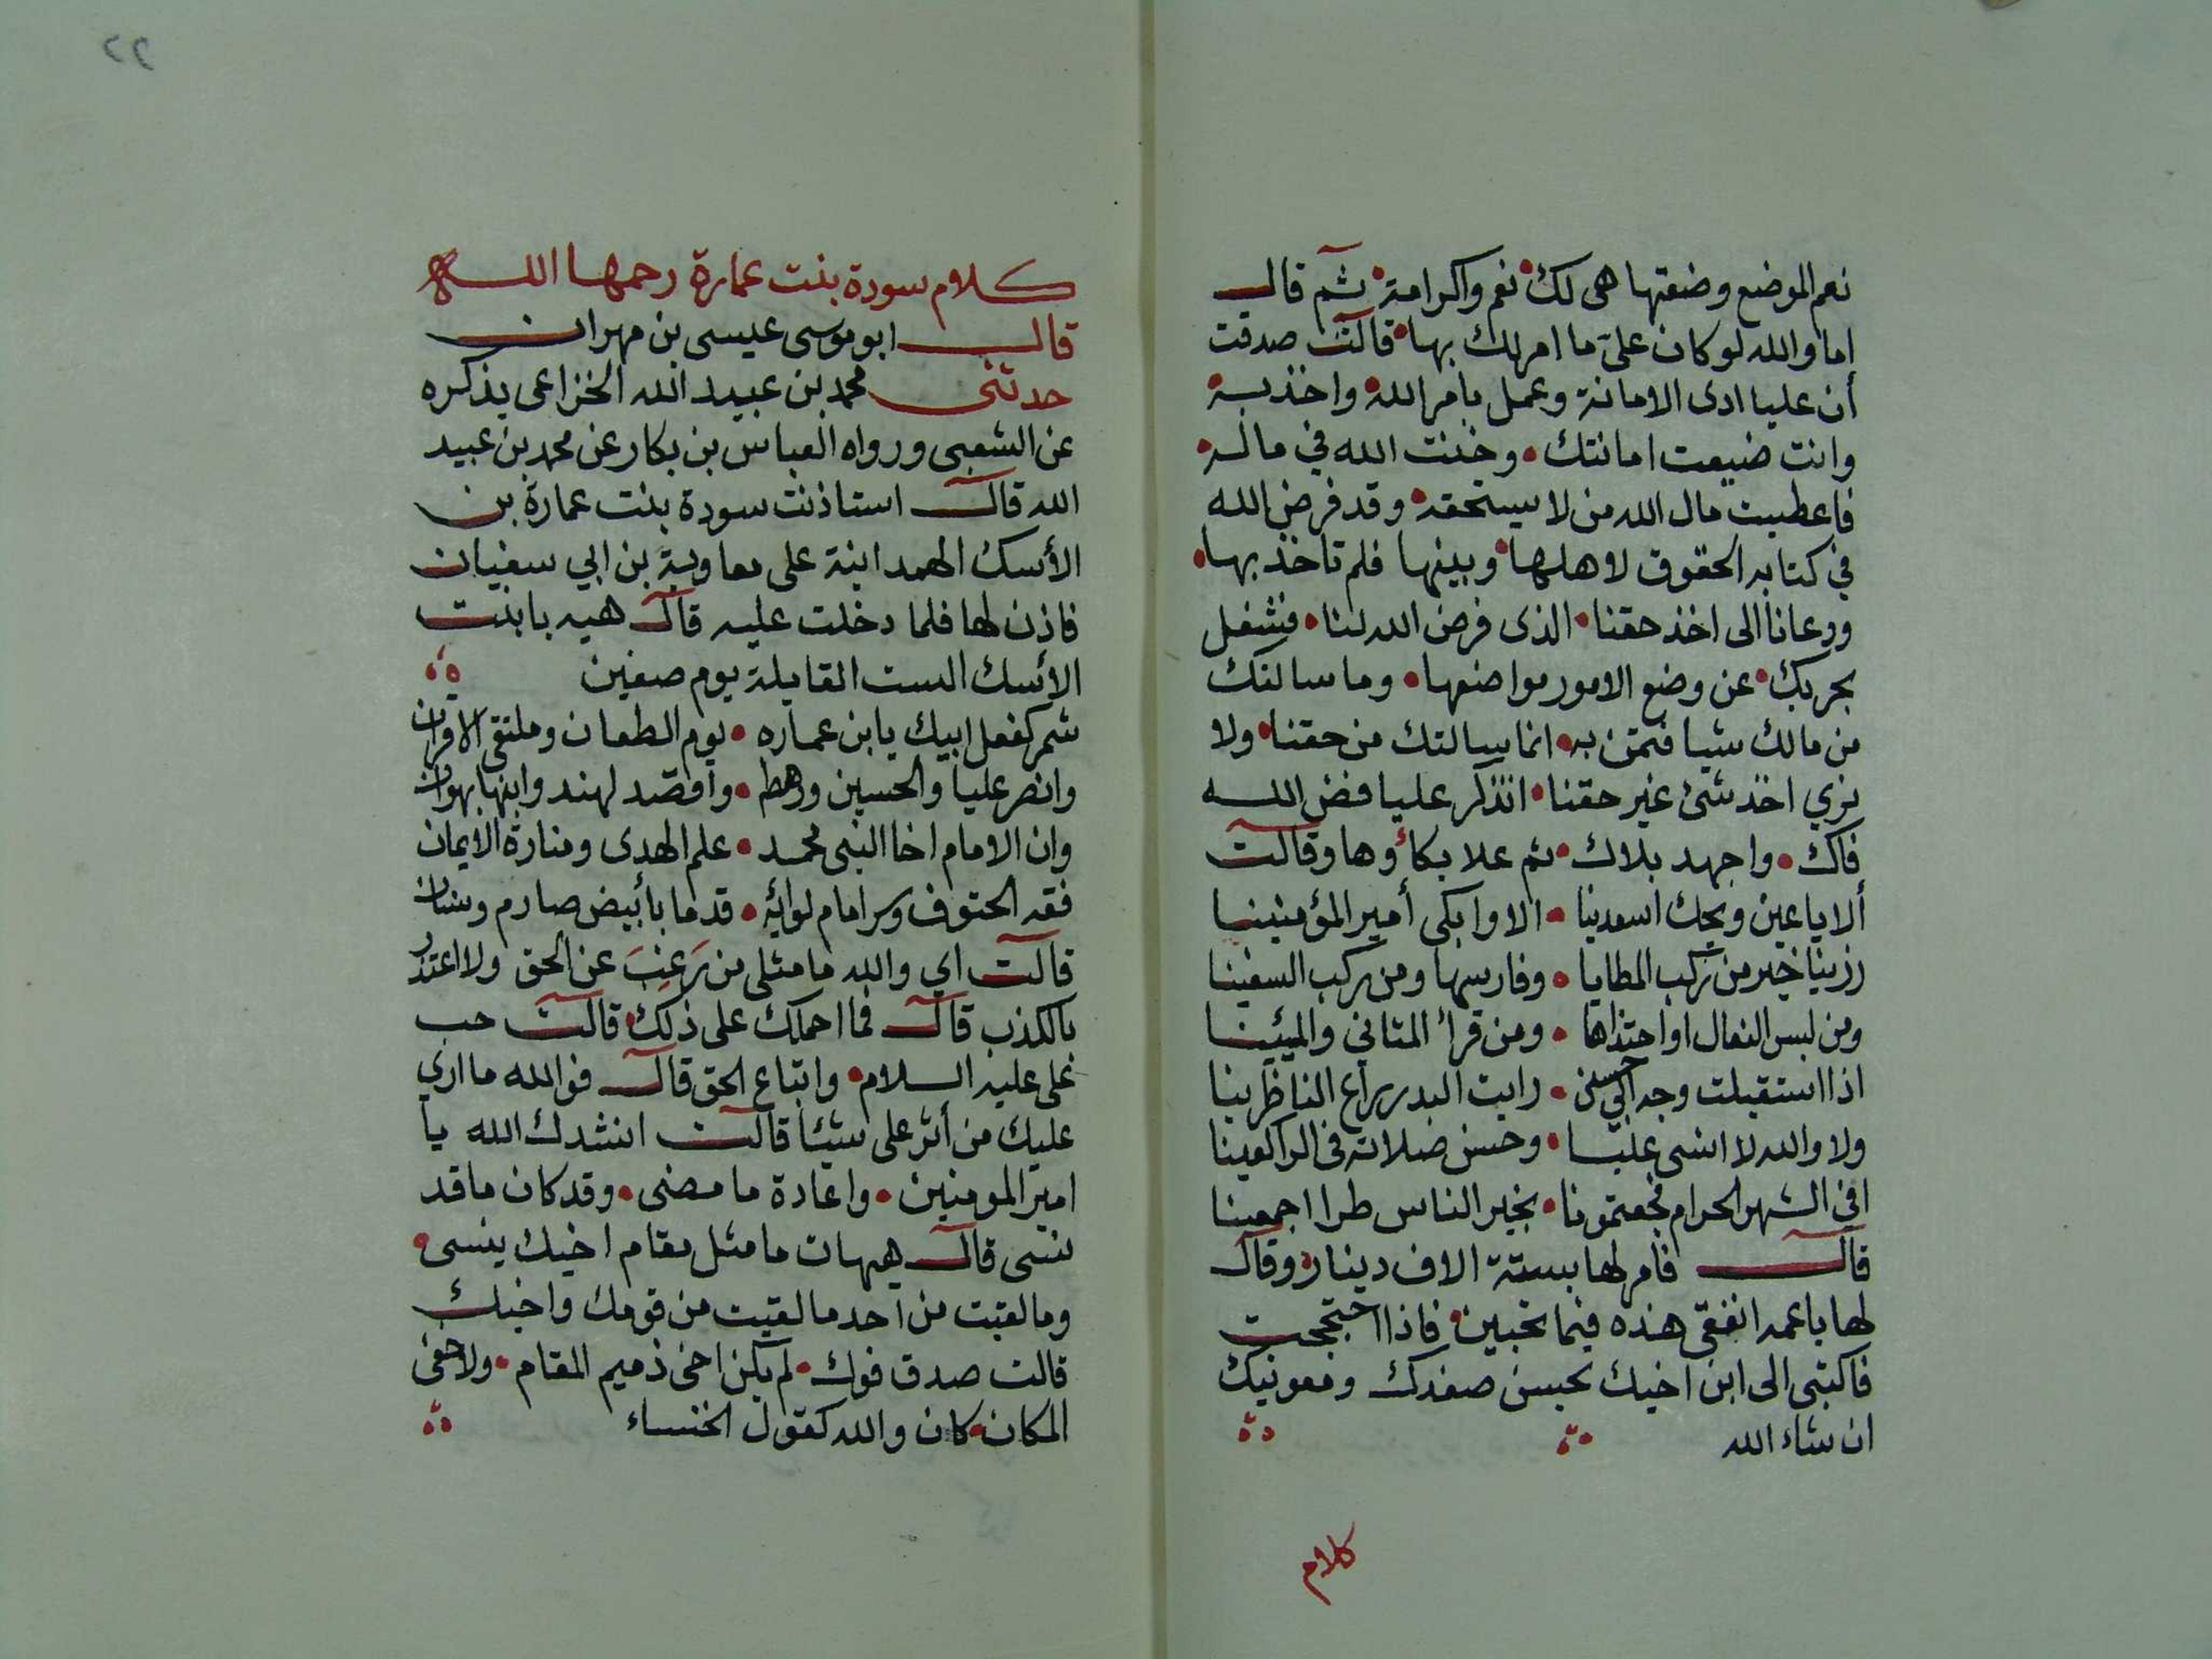 نعم الموضع وضعتها هى لك نعم واكرامة ثم قال
اما والله لو كان على ما امر لك بها قالت صدقت
أن عليا ادى الامانة وعمل بامر الله واخذ به
وانت ضيعت امانتك وخنت الله في ماله
فاعطيت مال الله من لا يستحقه وقد فرض الله
في كتابه الحقوق لاهلها وبينها فلم تاخذ بها
ودعانا الى اخذ حقنا الذى فرض الله لنا فشغل
بحربك عن وضع الامور مواضعها وما سالتك
من مالك شيا فتمتن به انما سالتك من حقنا ولا
نري اخذ شئ غير حقنا اتذكر عليا فض الله
فاك واجهد بلاك ثم علا بكاؤها وقالت
ألا يا عين ويحك اسعدينا الا وابكى أمير المؤمنينا
رزينا خير من ركب المطايا وفارسها ومن ركب السفينا
ومن لبس النعال او احتذاها ومن قرأ المثاني والميئينا
اذا استقبلت وجه ابي حسن رايت البدر راع الناظرينا
ولا والله لا انسى عليا وحسن صلاته فى الراكعينا
افي الشهر الحرام فجعتمونا بخير الناس طرا اجمعينا
قال فامر لها بستة الاف دينار وقال
لها ياعمه انفقى هذه فيما تحبين فاذا احتججت
فاكتبى الى ابن اخيك يحسن صفدك ومعونيك
ان شاء الله
كلام
٢٢
كلام سودة بنت عمارة رحمها الله
قال ابو موسى عيسى بن مهران
حدثنى محمد بن عبيد الله الخزاعى يذكره
عن الشعبى ورواه العباس بن بكار عن محمد بن عبيد
الله قال استاذنت سودة بنت عمارة بن
الأسك الهمدانية على معاوية بن ابي سفيان
فاذن لها فلما دخلت عليه قال هيه يا بنت
الأسك الست القايلة يوم صفين
شمر كفعل ابيك يا بن عماره يوم الطعان وملتقى الاقران
وانصر عليا والحسين ورهطه واقصد لهند وابنها بهوان
وان الامام اخا النبى محمد علم الهدى ومنارة الايمان
فقه الحتوف وسر امام لوائه قدما بأبيض صارم وسنان
قالت اي والله ما مثلى من رَغِبَ عن الحق ولا اعتذر
بالكذب قال فما احملك على ذلك قالت حب
على عليه السلام واتباع الحق قال فوالله ما اري
عليك من أثر على شيئا قالت انشدك الله يا
امير المومنين واعادة ما مضى وقد كان ما قد
ننسى قال هيهات ما مثل مقام اخيك ينسى
وما لقيت من احد ما لقيت من قومك واخيك
قالت صدق فوك لم يكن اخى ذميم المقام ولا خفى
المكان كان والله كقول الخنساء